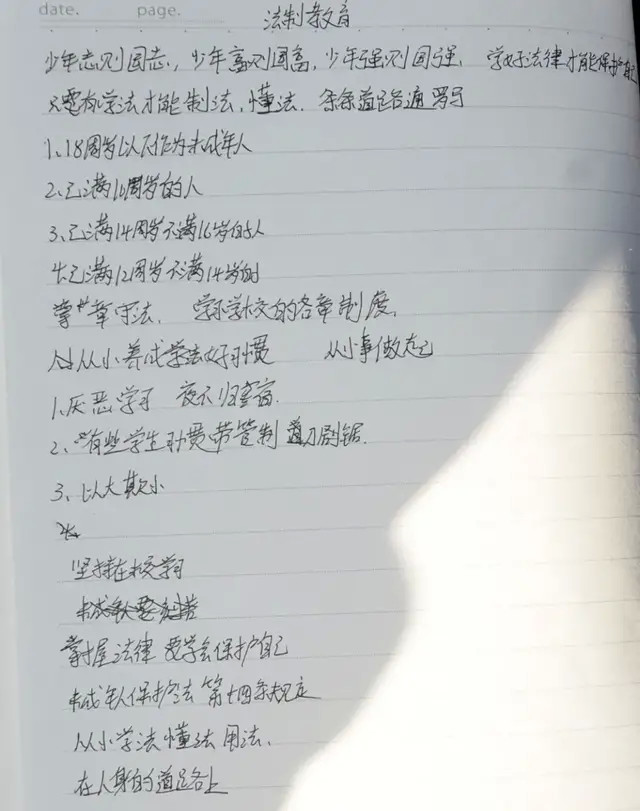 date. page.
法制教育
少年志则国志，少年富则国富，少年强则国强． 学好法律才能保护自己
只要有学法才能制法，懂法．条条道路通罗马
1、18周岁以下作为未成年人
2、已满16周岁的人
3、已满14周岁不满16岁的人
4、已满12周岁不满14岁的
章守法． 学习学校的各章制度．
从小养成学法好习惯 从小事做起
1、厌恶学习 夜不归宿．
2、有些学生习惯带管制刀剧锯．
3、以大欺小
坚持在校学习
掌握法律 要学会保护自己
未成年人保护法 第十四条规定
从小学法懂法用法．
在人身的道路上